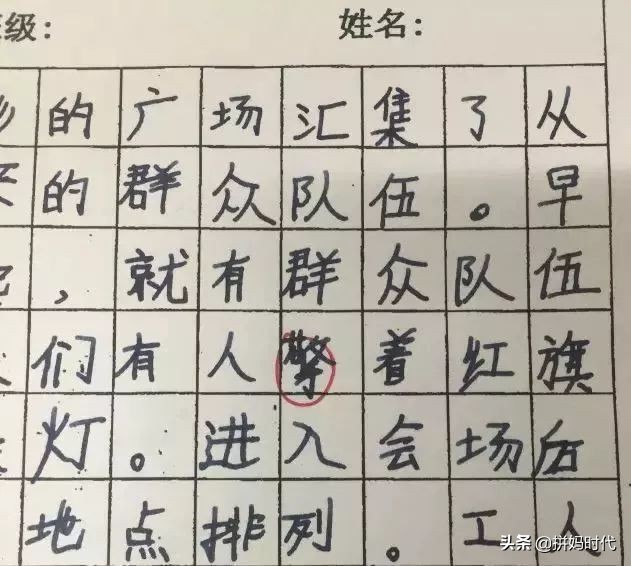 级: 姓名:
的广场汇集了从
的群众队伍。早
，就有群众队伍
们有人擎着红旗
灯。进入会场后
地点排列。工人
头条 @拼妈时代